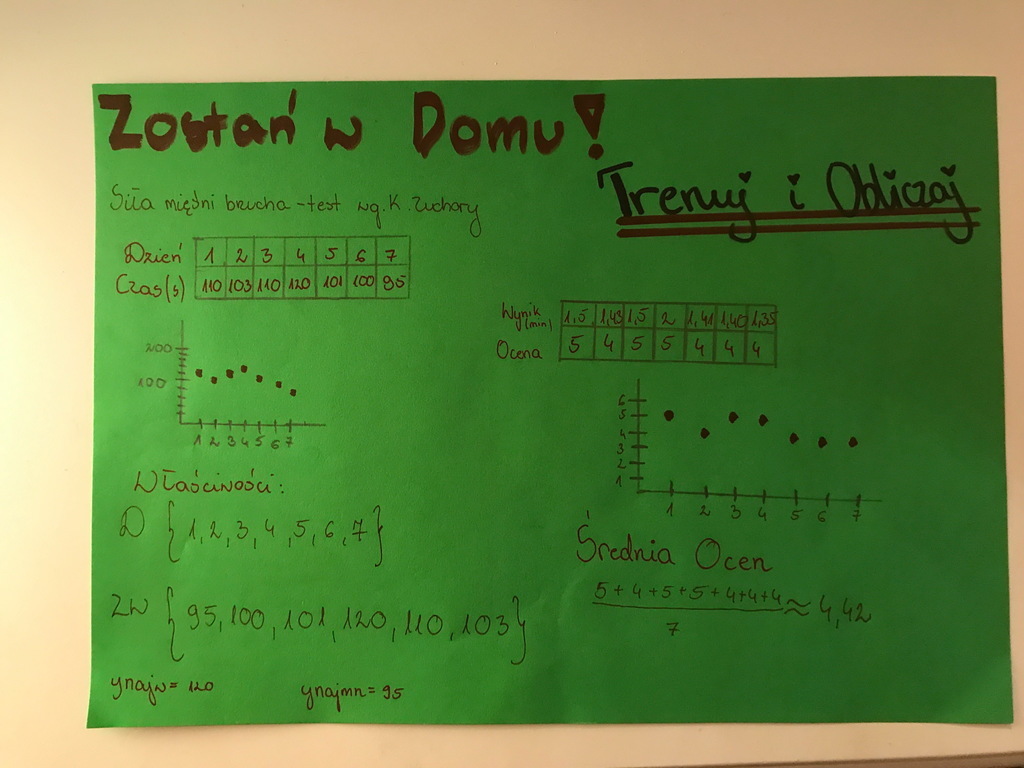 Zostań w Domu!
Trenuj i Obliczaj
Siła mięśni brzucha - test wg. K. Zuchory
Dzień 1 2 3 4 5 6 7
Czas(s) 110 103 110 120 101 100 95
200
100
1 2 3 4 5 6 7
Właściwości:
D {1, 2, 3, 4, 5, 6, 7}
Zw {95, 100, 101, 120, 110, 103}
ynajw = 120
ynajmn = 95
Wynik (min) 1,5 1,43 1,5 2 1,41 1,40 1,35
Ocena 5 4 5 5 4 4 4
6
5
4
3
2
1
1 2 3 4 5 6 7
Średnia Ocen
5+4+5+5+4+4+4 ≈ 4,42
7